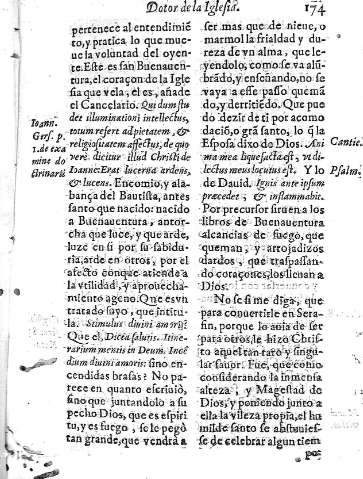 Dotor de la Iglesia. 174
pertenece al entendimiẽ
to, y pratica lo que mue-
ue la voluntad del oyen-
te. Este es san Buenauen
tura, el coraçon de la Igle
sia que vela, el es, añade
el Cancelario. Qui dum stu
det illuminationi intellectus,
totum refert ad pietatem, &
religiositatem affectus, de quo
verè dicitur illud Christi de
Ioanne: Erat lucerna ardens,
& lucens. Encomio, y ala-
bança del Bautista, antes
santo que nacido: nacido
a Buenauentura, antor-
cha que luce, y que arde,
luze en si por su sabidu-
ria, arde en otros, por el
afecto conque atiende a
la vtilidad, y aprouecha-
miento ageno. Que es vn
tratado suyo, que intitu-
la. Stimulus diuini amoris?
Que el, Dieta salutis. Itine-
rarium mentis in Deum. Incẽ
dium diuini amoris: sino en-
cendidas brasas? No pa-
rece en quanto escriuió,
sino que juntandolo a su
pecho Dios, que es espiri
tu, y es fuego, se le pegò
tan grande, que vendrá a
Ioann.
Gers. p.
1. de exa
mine do
ctrinariũ
ser mas que de nieue, o
marmol la frialdad y du-
reza de vn alma, que le-
yendolo, como se va alũ-
brãdo, y enseñando, no se
vaya a esse passo quemã
do, y derritiẽdo. Que puẽ
do dezir de ti por acomo
daciõ, o grã santo, lo q̃ la
Esposa dixo de Dios. Ani
ma mea liquefacta est, vt di-
lectus meus locutus est. Y lo
de Dauid. Ignis ante ipsum
precedet, & inflammabit.
Por precursor siruen a los
libros de Buenauentura
alcancias de fuego, que
queman, y arrojadizos
dardos, que traspassan-
do coraçones, los llenan a
Dios.
No se si me diga, que
para conuertirle en Sera-
fin, porque lo auia de ser
para otros, le hizo Chris-
to aquel tan raro y singu-
lar fauor. Fue, que como
considerando la inmensa
alteza, y Magestad de
Dios, y poniendo junto a
ella la vileza propia, el hu
milde santo se abstuuies-
se de celebrar algun tiem
po,
Cantic.
Psalm.